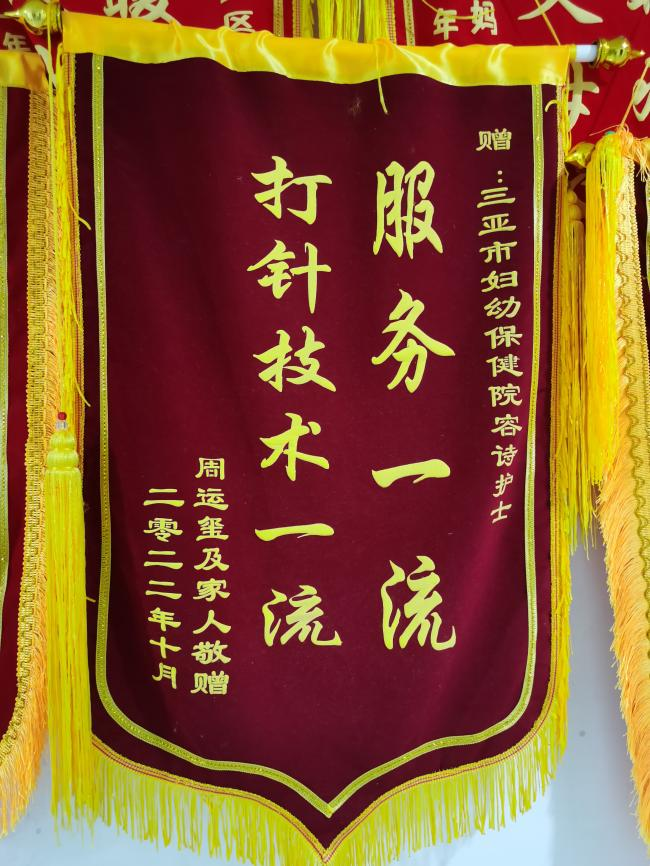 赠：三亚市妇幼保健院容诗护士
服务一流
打针技术一流
周运玺及家人敬赠
二零二二年十月
区
年
妈
年